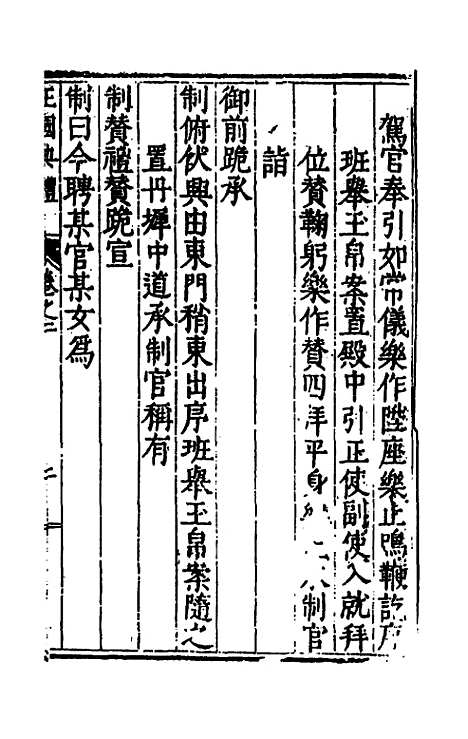 駕官奉引如常儀樂作陞座樂止鳴鞭訖序
班舉玉帛案置殿中引正使副使入就拜
位贊鞠躬樂作贊四拜平身樂止承制官
詣
御前跪承
制俯伏興由東門稍東出序班舉玉帛案隨之
置丹墀中道承制官稱有
制贊禮贊跪宣
制曰今聘某官某女爲
王國典禮 卷之二